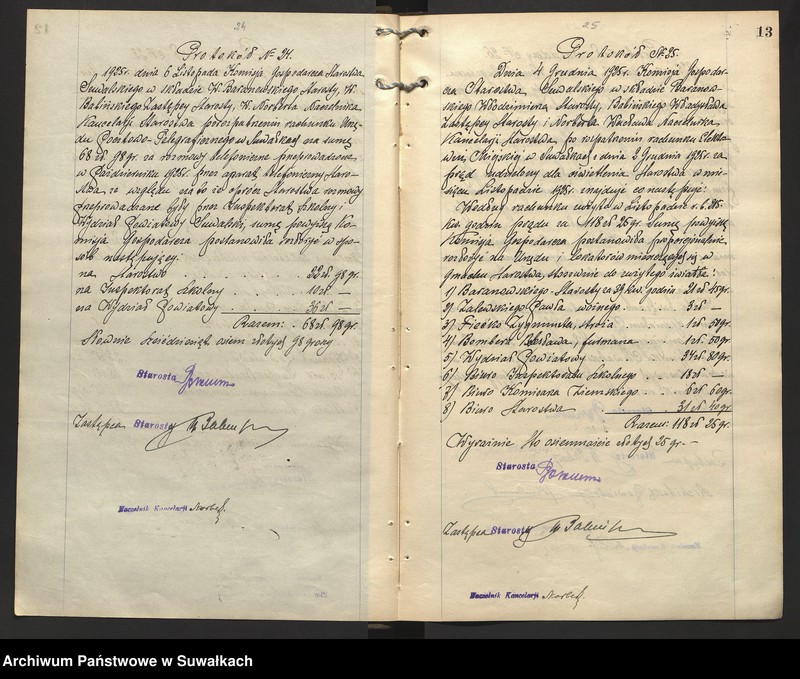 24
Protokół № 24.
1925r. dnia 6 Listopada Komisja Gospodarcza Starostwa
Suwalskiego w składzie W. Baranowskiego Starosty, W.
Balińskiego Zastępcy Starosty, W. Norberta Naczelnika
Kancelarji Starostwa po rozpatrzeniu rachunku Urzę-
du Pocztowo-Telegraficznego w Suwałkach na sumę
68 zł. 98 gr. za rozmowy telefoniczne przeprowadzone
w Październiku 1925r. przez aparat telefoniczny Staro-
stwa, ze względu na to iż oprócz Starostwa rozmowy
przeprowadzane były przez Inspektorat Szkolny i
Wydział Powiatowy Suwalski, sumę powyższą Ko-
misja Gospodarcza postanowiła rozbić w spo-
sób następujący:
na Starostwo . . . . . 22 zł. 98 gr.
na Inspektorat Szkolny . . . 10 zł —
na Wydział Powiatowy . . . 36 zł —
Razem: . 68 zł 98 gr.
Słownie sześćdziesiąt osiem złotych 98 groszy
Starosta
Zastępca Starosty
Naczelnik Kancelarji
25
13
Protokół № 25.
Dnia 4 Grudnia 1925r. Komisja Gospodar-
cza Starostwa Suwalskiego w składzie Baranow-
skiego Włodzimierza Starosty, Balińskiego Władysława
Zastępcy Starosty i Norberta Wacława Naczelnika
Kancelarji Starostwa, po rozpatrzeniu rachunku Elektro-
wni Miejskiej w Suwałkach z dnia 2 Grudnia 1925r. za
prąd udzielony dla oświetlenia Starostwa w mie-
siącu Listopadzie 1925r. znajduje co następuje:
Według rachunku użyto w Listopadzie r. b. 215
kw. godzin prądu za 118 zł 25 gr. Sumę powyższą
Komisja Gospodarcza postanowiła proporcjonalnie
rozłożyć na Urzędu i lokatorów mieszczących się w
gmachu Starostwa, stosownie do zużytego światła:
1) Baranowskiego - Starosty za 39 kw. godzin 21 zł 45 gr.
2) Zalewskiego Pawła woźnego . . . 3 zł —
3) Zygmunta, stróża . . . 1 zł 50 gr.
4) furmana . . . 1 zł 50 gr.
5) Wydział Powiatowy . . . 34 zł 80 gr.
6) Biuro Inspektoratu Szkolnego . . . 18 zł —
7) Biuro Komisarza Ziemskiego . . . 6 zł 60 gr.
8) Biuro Starostwa . . . 31 zł 40 gr.
Razem: 118 zł 25 gr.
Wyraźnie sto osiemnaście złotych 25 gr. —
Starosta
Zastępca Starosty
Naczelnik Kancelarji
Archiwum Państwowe w Suwałkach